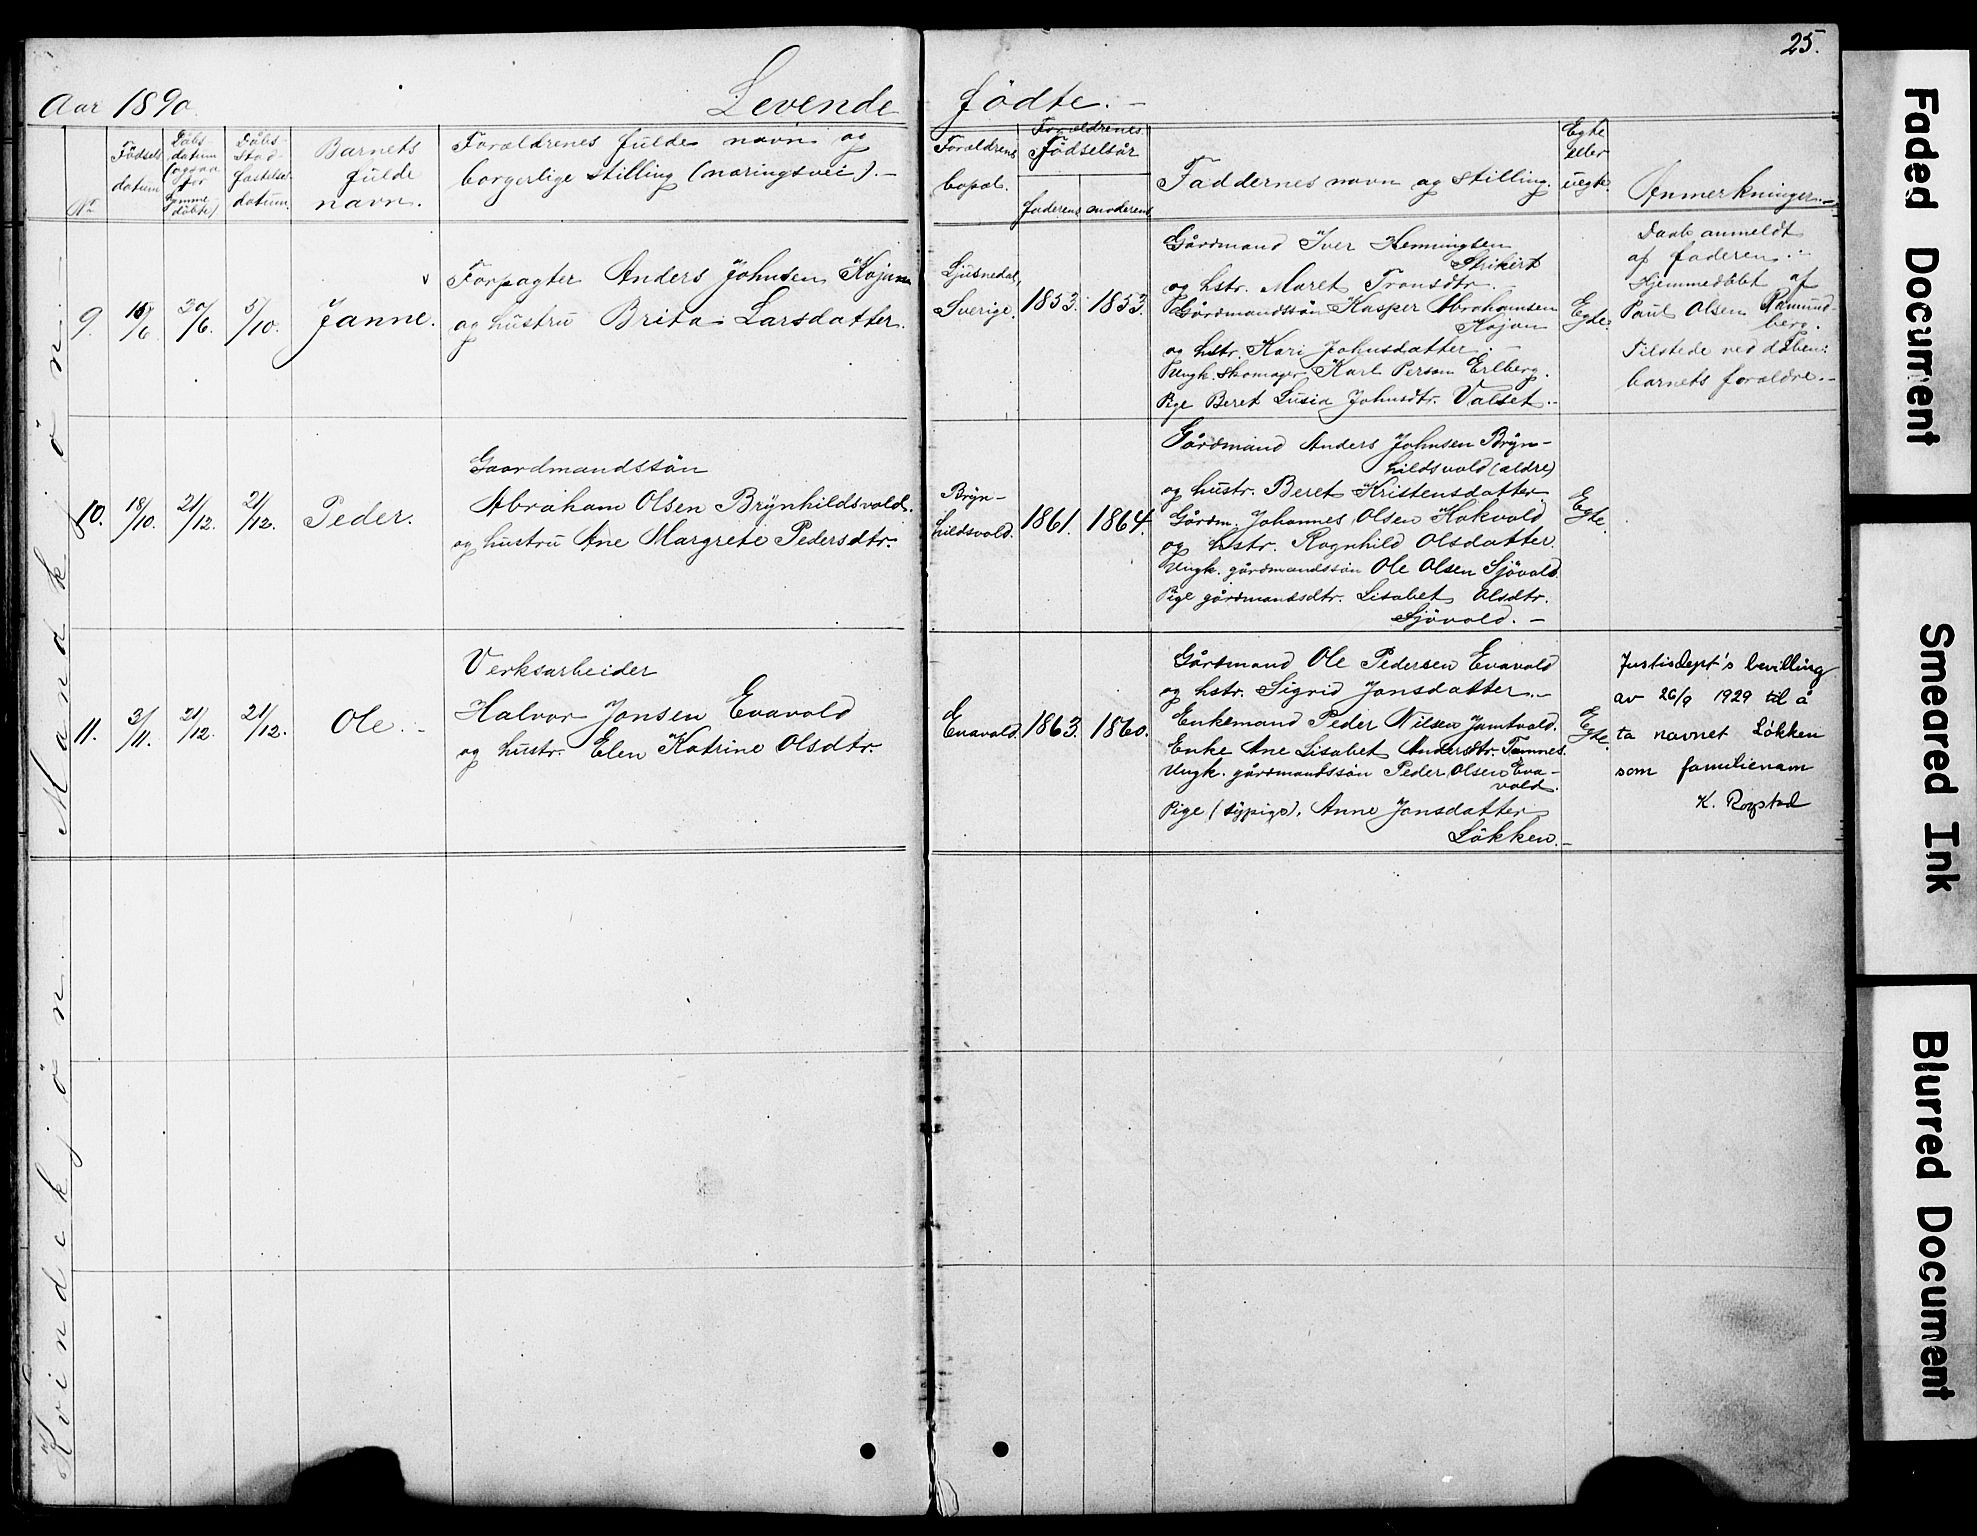 25.
Aar 1890.
Levende födte. –
No
Födsels datum
Dåbs datum (ogsaa for hjemme döbte)
Dåbs Stad- fæstelses datum.
Barnets fulde navn.
Forældrenes fulde navn og borgerlige stilling (næringsvei). –
Forældrenes bopæl.
Forældrenes Födselsår
faderens
moderens
Faddernes navn og stilling.
Egte eller uegte
Anmerkninger. –
Mandkjön.
9.
15/6
30/6.
5/10.
Janne.
Forpagter Anders Johnsen Kojan
og hustru Brita Larsdatter.
Ljusnedal,
Sverige.
1853.
1853.
Gårdmand Iver Henningsen
Strikert
og hstr. Maret Tronsdtr. –
Gårdmandssön Kasper Abrahamsen
Kojan
og hstr. Kari Johnsdatter. –
Ungk. skomager Karl Person Erlberg.
Pige Beret Lusia Johnsdtr. Valset. –
Egte
Daab anmeldt
af faderen. –
Hjemmedöbt af
Paul Olsen Ramund-
berg.
Tilstede ved dåben:
barnets forældre. –
10.
18/10.
21/12.
21/12.
Peder.
Gaardmandssön
Abraham Olsen Brynhildsvold.
og hustru Ane Margrete Pedersdtr.
Bryn-
hildsvold.
1861.
1864.
Gårdmand Anders Johnsen Bryn-
hildsvold (ældre)
og hustr. Beret Kristensdatter
Gårdm. Johannes Olsen Kokvold
og hstr. Ragnhild Olsdatter.
Ungk. gårdmandssön Ole Olsen Sjövold.
Pige gårdmandsdtr. Lisabet Olsdtr.
Sjövold. –
Egte.
11.
2/11.
21/12.
21/12.
Ole. –
Verksarbeider
Halvor Jonsen Evavold
og hustr. Elen Katrine Olsdtr.
Evavold.
1863.
1860.
Gårdmand Ole Pedersen Evavold
og hstr. Sigrid Jonsdatter. –
Enkemand Peder Nilsen Jamtvold.
Enke Ane Lisabet Andersdtr. Tamnes.
Ungk. gårdmandssön Peder Olsen Eva-
vold.
Pige (sypige). Anne Jonsdatter
Lökken. –
Egte.
Justisdept's bevilling
av 26/9 1929 til å
ta navnet Løkken
som familienavn
K. Rogstad
Kvindekjön.
Faded Document
Smeared Ink
Blurred Document